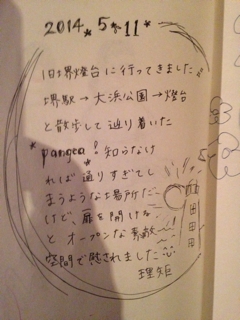 2014.5.11
旧堺燈台に行ってきました。
堺駅→大浜公園→燈台
と散歩して辿り着いた
pangea！知らなけ
れば通りすぎてし
まうような場所だ
けど、扉を開ける
とオープンな素敵
空間で癒されました